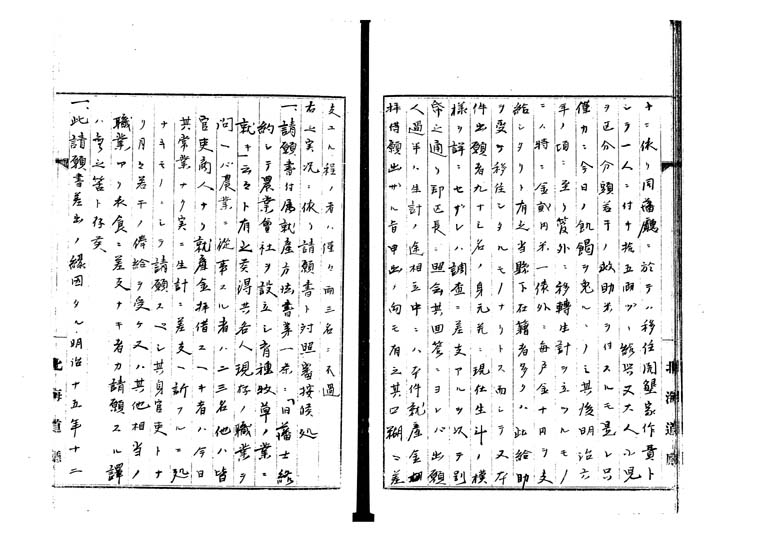 ナニ依リ同藩廳ニ於テハ移住開墾家作量ト
シテ一人ニ付キ拾五両ヅヽ給与又大人小児
ヲ区分分頭若干ノ救助米ヲ付スルモ是レ只
僅カニ今日ノ飢餲ヲ免ルヽノミ其後明治六
年ノ頃ニ至リ管外ニ移轉生計ヲ立ツルモノ
ニハ特ニ金弐円米一俵外ニ毎戸金十円ヲ支
給シタリト有之当縣下在籍者多クハ此給助
ヲ受ケ移住シタルモノナリトス而シテ又本
件出願者九十三名ノ身元並ニ現在生計ノ模
様ヲ詳ニセザレハ調査ニ差支アルヲ以テ別
帋之通リ郡区長ニ照会其回答ニヨレバ出願
人過半ハ生計ノ途相立中ニハ本件就産金
拝借願出ザル旨申出ノ向モ有之其口糊ニ差
支エル程ノ者ハ僅々両三名ニ不過
右之実況ニ依リ請願書ト対照審按候処
一、請願書付属就産方法書第一条ニ「旧藩士結
約シテ農業會社ヲ設立シ育種牧草ノ業ニ
就キ」云々ト有之候得共各人現存ノ職業ヲ
問ヘハ農業ニ従事スル者ハ二三名他ハ皆
官吏商人ナリ就産金拝借スヘキ者ハ今日
其常業ナク実ニ生計ニ差支ヘ訴フルニ処
ナキモノニシテ請願スベシ其身官吏トナ
リ月々若干ノ俸給ヲ受ケ又ハ其他相当ノ
職業アリ衣食ニ差支ナキ者カ請願スル譯
ハ有之筈ト存候
一、此請願書差出ノ縁因タル明治十五年十二
北海道廳
北海道廳